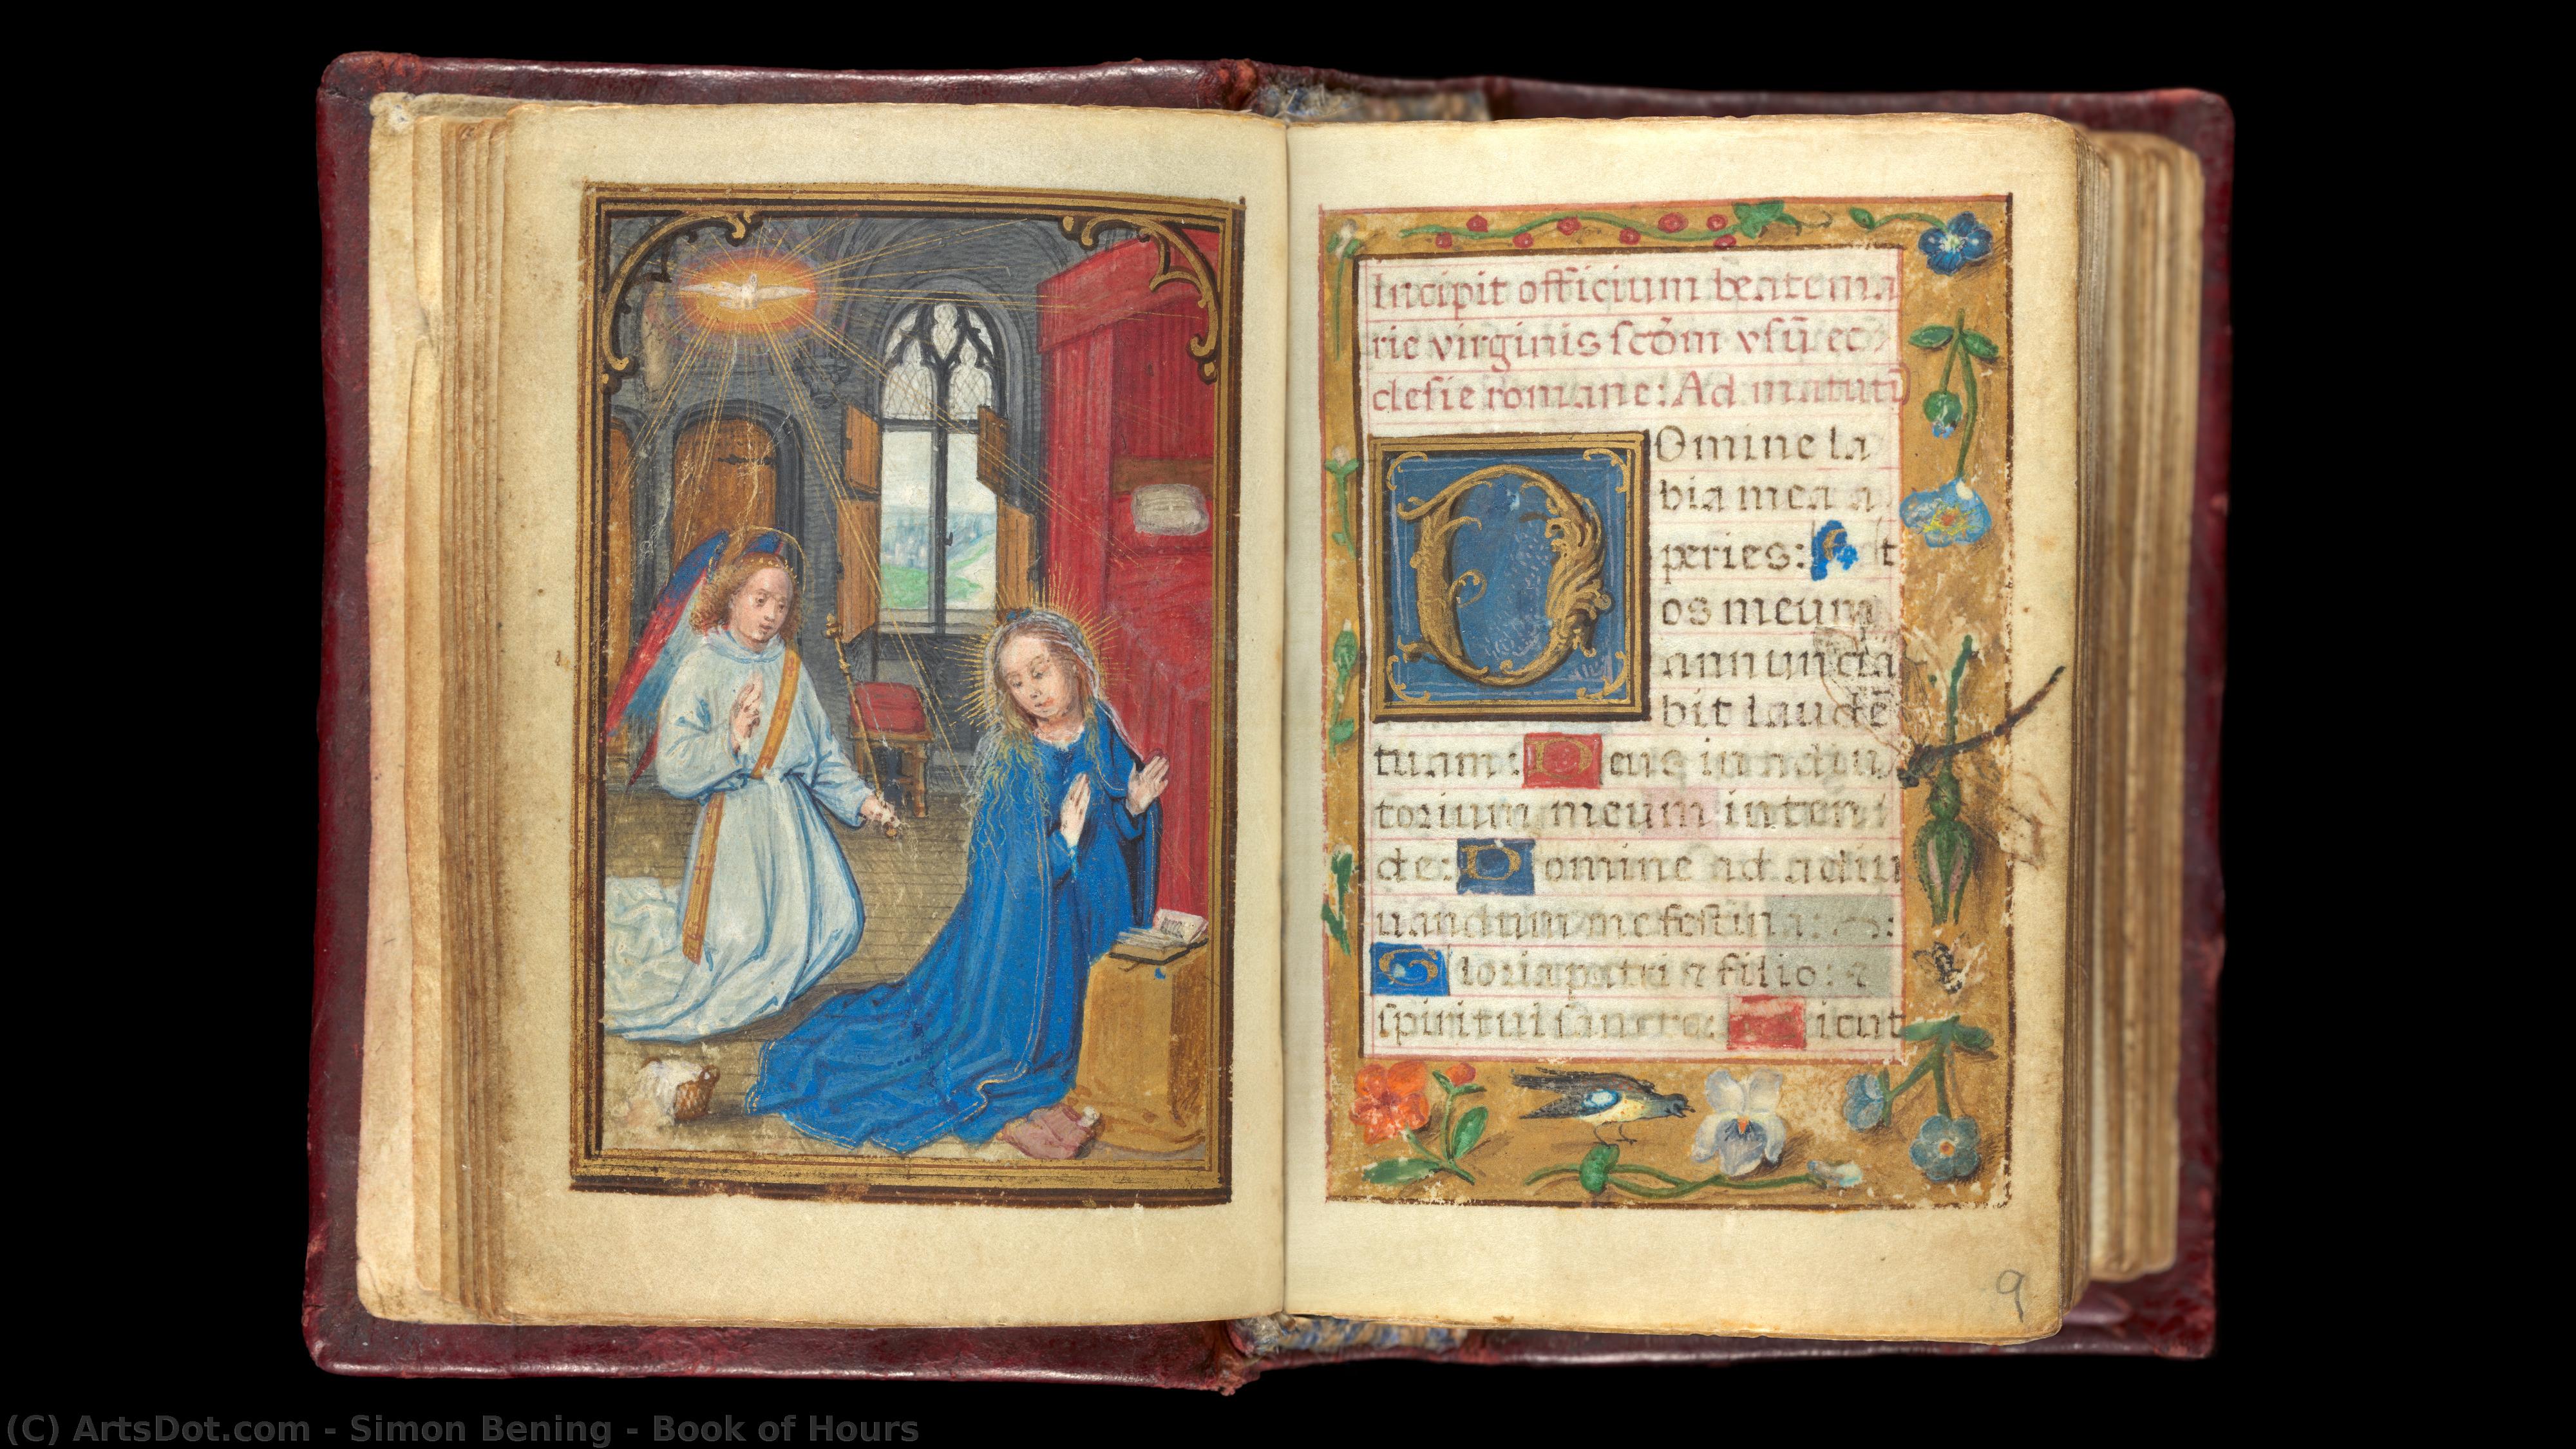 Incipit officium beate ma
rie virginis scdm̄ vsū ec
clesie romane: Ad matuti
Domine la
bia mea a
peries: Et
os meum
annuncia
bit laudē
tuam: Deus in adiu
torium meum inten
de: Domine ad adiu
uandum me festina:
Gloria patri ⁊ filio: ⁊
spiritui sancto: Sicut
9
(C) ArtsDot.com - Simon Bening - Book of Hours